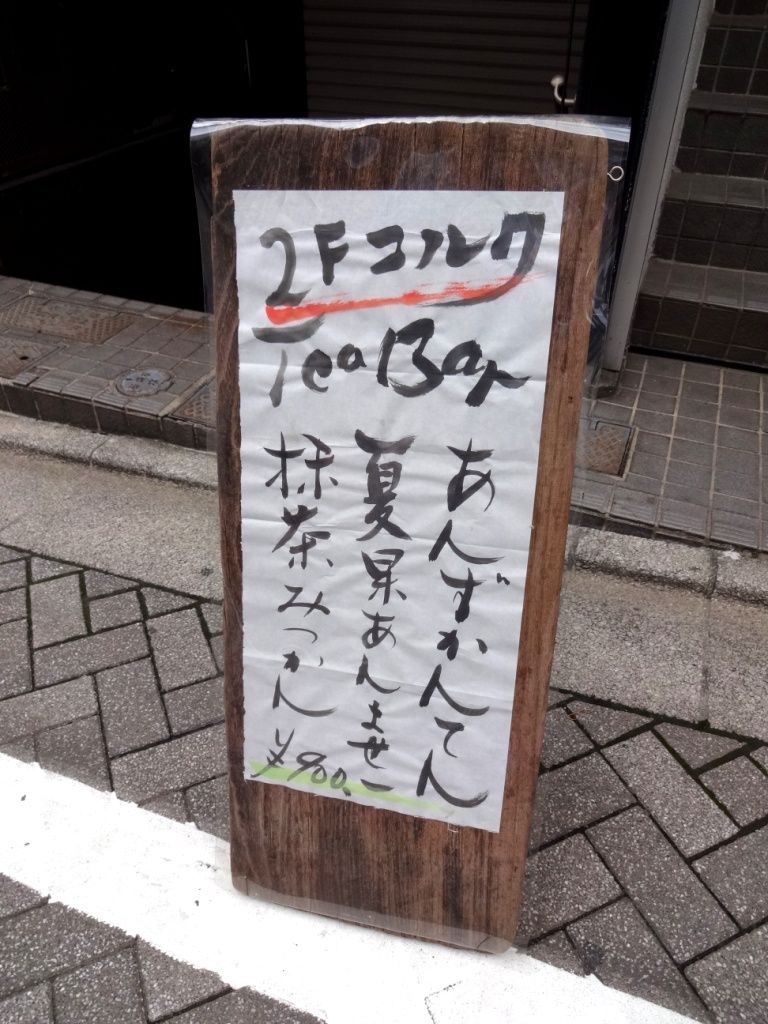 2F コルク
Tea Bar
あんずかんてん
夏果あんませー
抹茶みつかん
¥900.